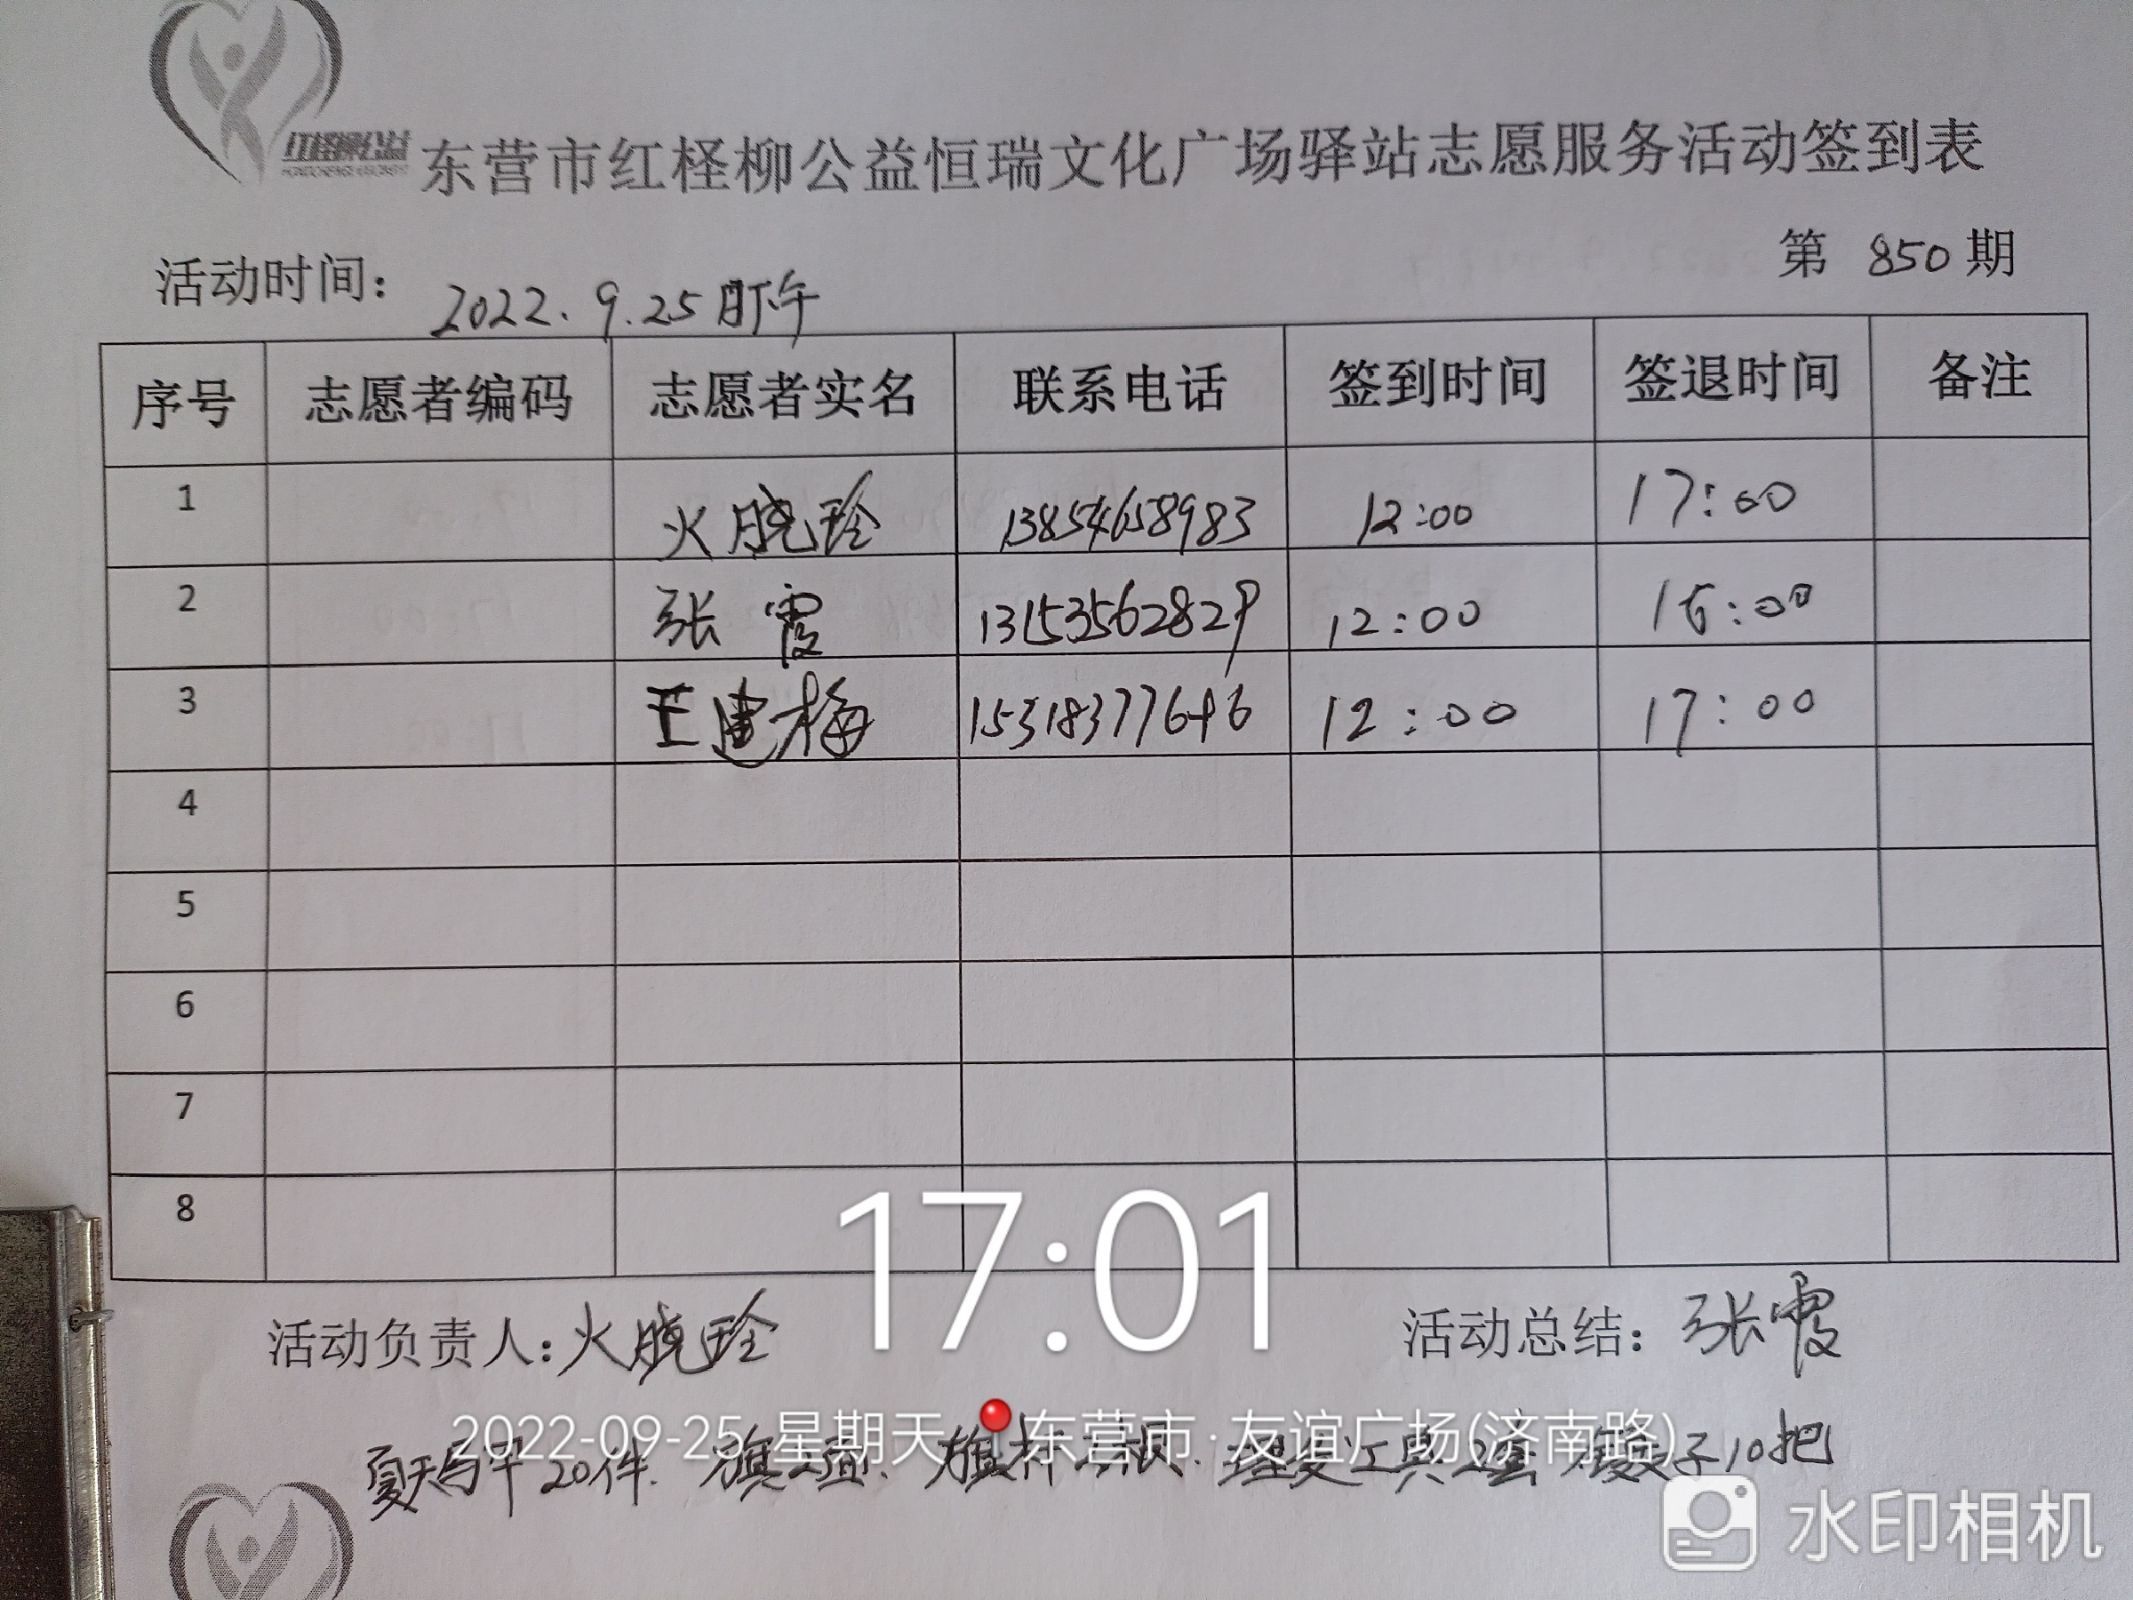 红柽柳公益
东营市红柽柳公益恒瑞文化广场驿站志愿服务活动签到表
第 850 期
活动时间: 2022.9.25日下午
序号 志愿者编码 志愿者实名 联系电话 签到时间 签退时间 备注
1 火晓玲 13854658983 12:00 17:00
2 张霞 13153562829 12:00 16:00
3 王建梅 15318377646 12:00 17:00
4
5
6
7
8
17:01
活动负责人: 火晓玲 活动总结: 张霞
2022-09-25 星期天 东营市·友谊广场(济南路)
夏天马甲20件. 旗2面. 旗杆 理发工具2套 剪子10把
水印相机